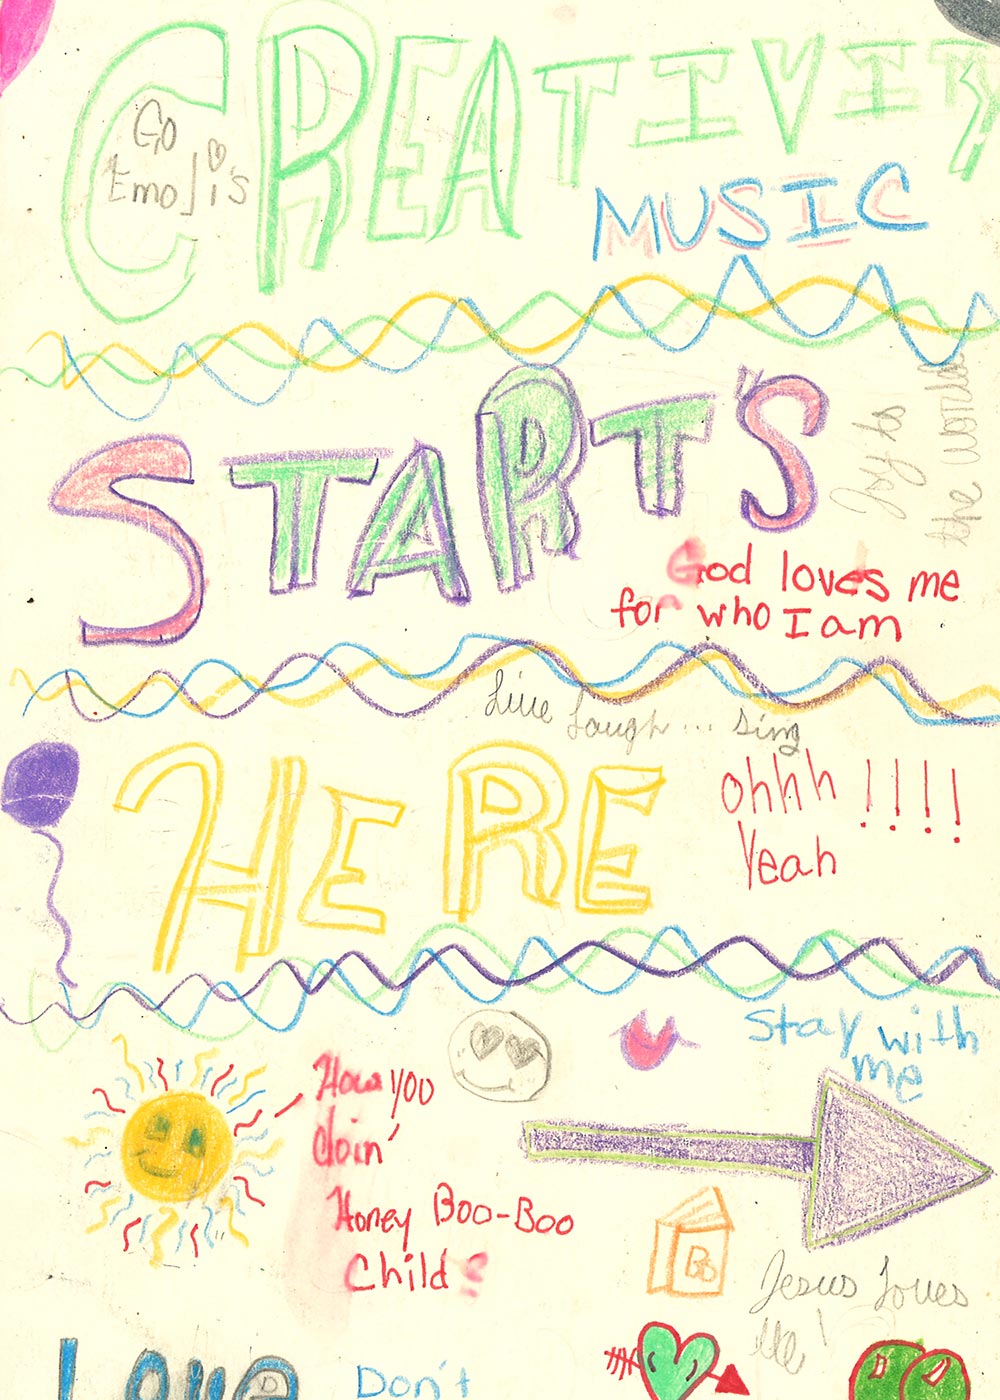 CREATIVIT
Go
Emoji's
MUSIC
Joy to
the world
STARTS
God loves me
for who I am
Live Laugh... Sing
HERE
Ohhh !!!!
Yeah
Stay with
me
How you
doin'
Honey Boo-Boo
Child?
Jesus Loves
Me!
Love
Don't